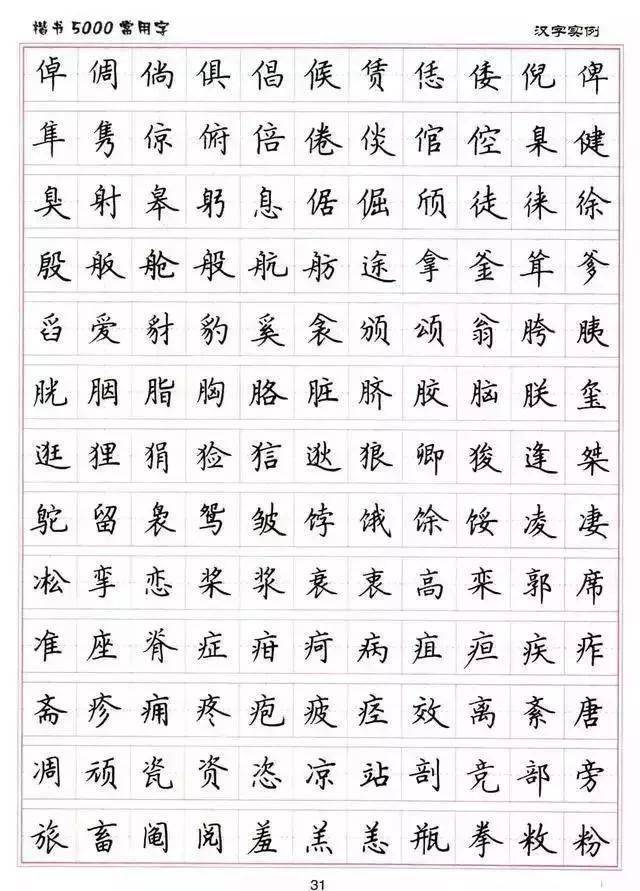 楷书5000常用字 汉字实例
倬倜倘俱倡候赁恁倭倪俾
隼隽倞俯倍倦倓倌倥臬健
臭射皋躬息倨倔颀徒徕徐
殷舨舱般航舫途拿釜耸爹
舀爱豺豹奚衾颁颂翁胯胰
胱胭脂胸胳脏脐胶脑朕玺
逛狸狷猃狺逖狼卿狻逢桀
鸵留袅鸳皱饽饿馀馁凌凄
凇挛恋桨浆衰衷高栾郭席
准座脊症疳疴病疽疸疾痄
斋疹痈疼疱疲痉效离紊唐
凋颃瓷资恣凉站剖竞部旁
旅畜阅羞羔恙瓶拳敉粉
31